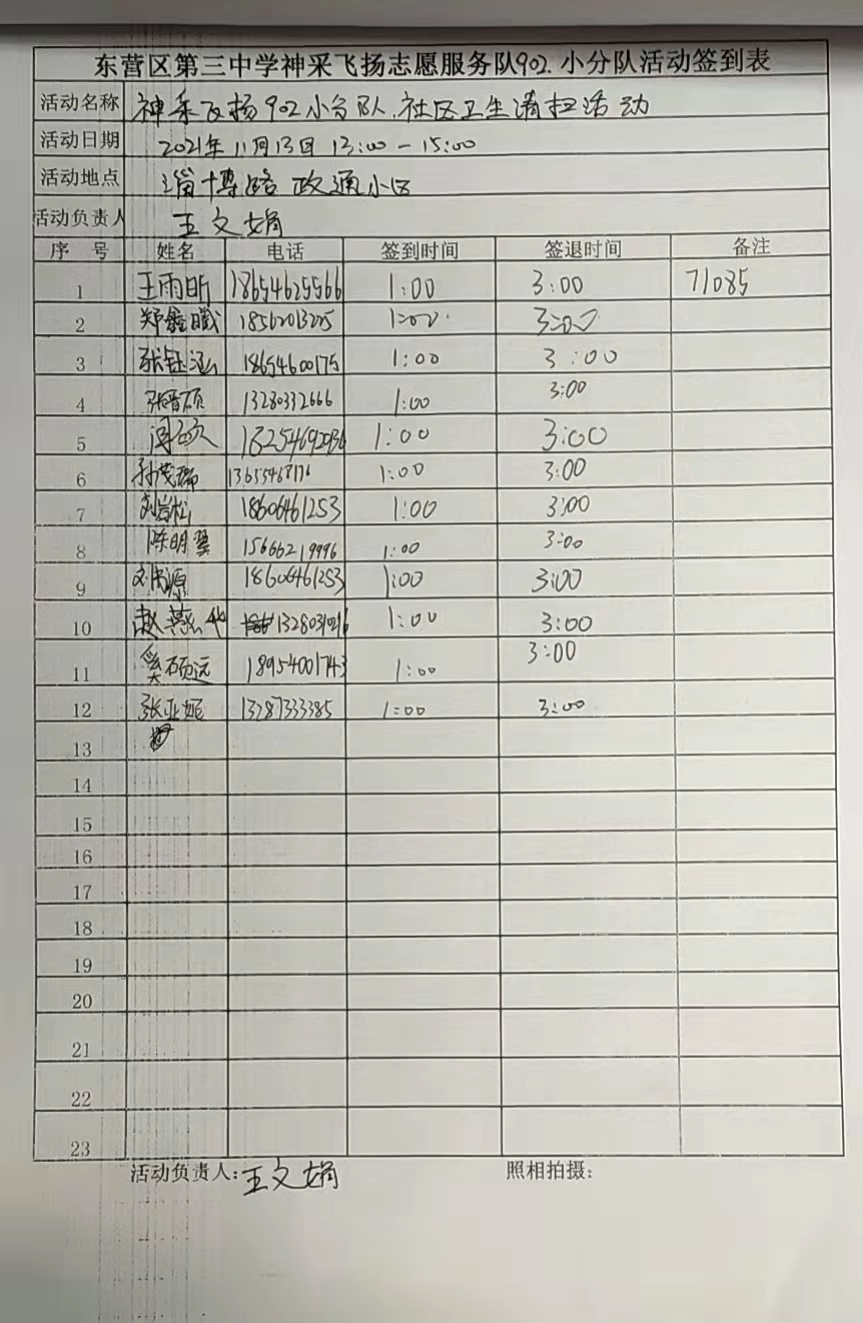 东营区第三中学神采飞扬志愿服务队902.小分队活动签到表
活动名称 神采飞扬902小分队.社区卫生清扫活动
活动日期 2021年11月13日 13:00-15:00
活动地点 淄博路 政通小区
活动负责人 王文娟
序 号 姓名 电话 签到时间 签退时间 备注
1 王雨昕 18654625566 1:00 3:00 71085
2 1:00 3:00
3 张钰涵 18654600175 1:00 3:00
4 张晋硕 13280332666 1:00 3:00
5 1:00 3:00
6 孙茂瑞 1:00 3:00
7 刘岩松 18606461253 1:00 3:00
8 陈明翼 15666219996 1:00 3:00
9 18606461253 1:00 3:00
10 赵燕华 1:00 3:00
11 奚硕远 18954001743 1:00 3:00
12 张亚妮 13287333385 1:00 3:00
13
14
15
16
17
18
19
20
21
22
23
活动负责人:王文娟 照相拍摄: